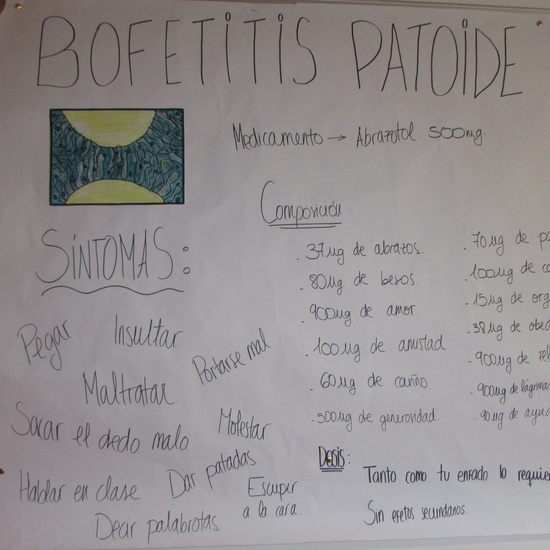 BOFETITIS PATOIDE
Medicamento → Abrazotol 500mg
Composición
SÍNTOMAS:
- 37ug de abrazos.
- 80ug de besos.
- 900ug de amor
- 100ug de amistad
- 60ug de cariño
- 500ug de generosidad
- 70ug de
- 100ug de
- 15ug de
- 38ug de
- 900ug de
- 900ug de
- 90ug de
Pegar
Insultar
Portarse mal
Maltratar
Sacar el dedo malo
Molestar
Hablar en clase
Dar patadas
Escupir
a la cara
Decir palabrotas.
Dosis:
Tanto como tu enfado lo
Sin efectos secundarios